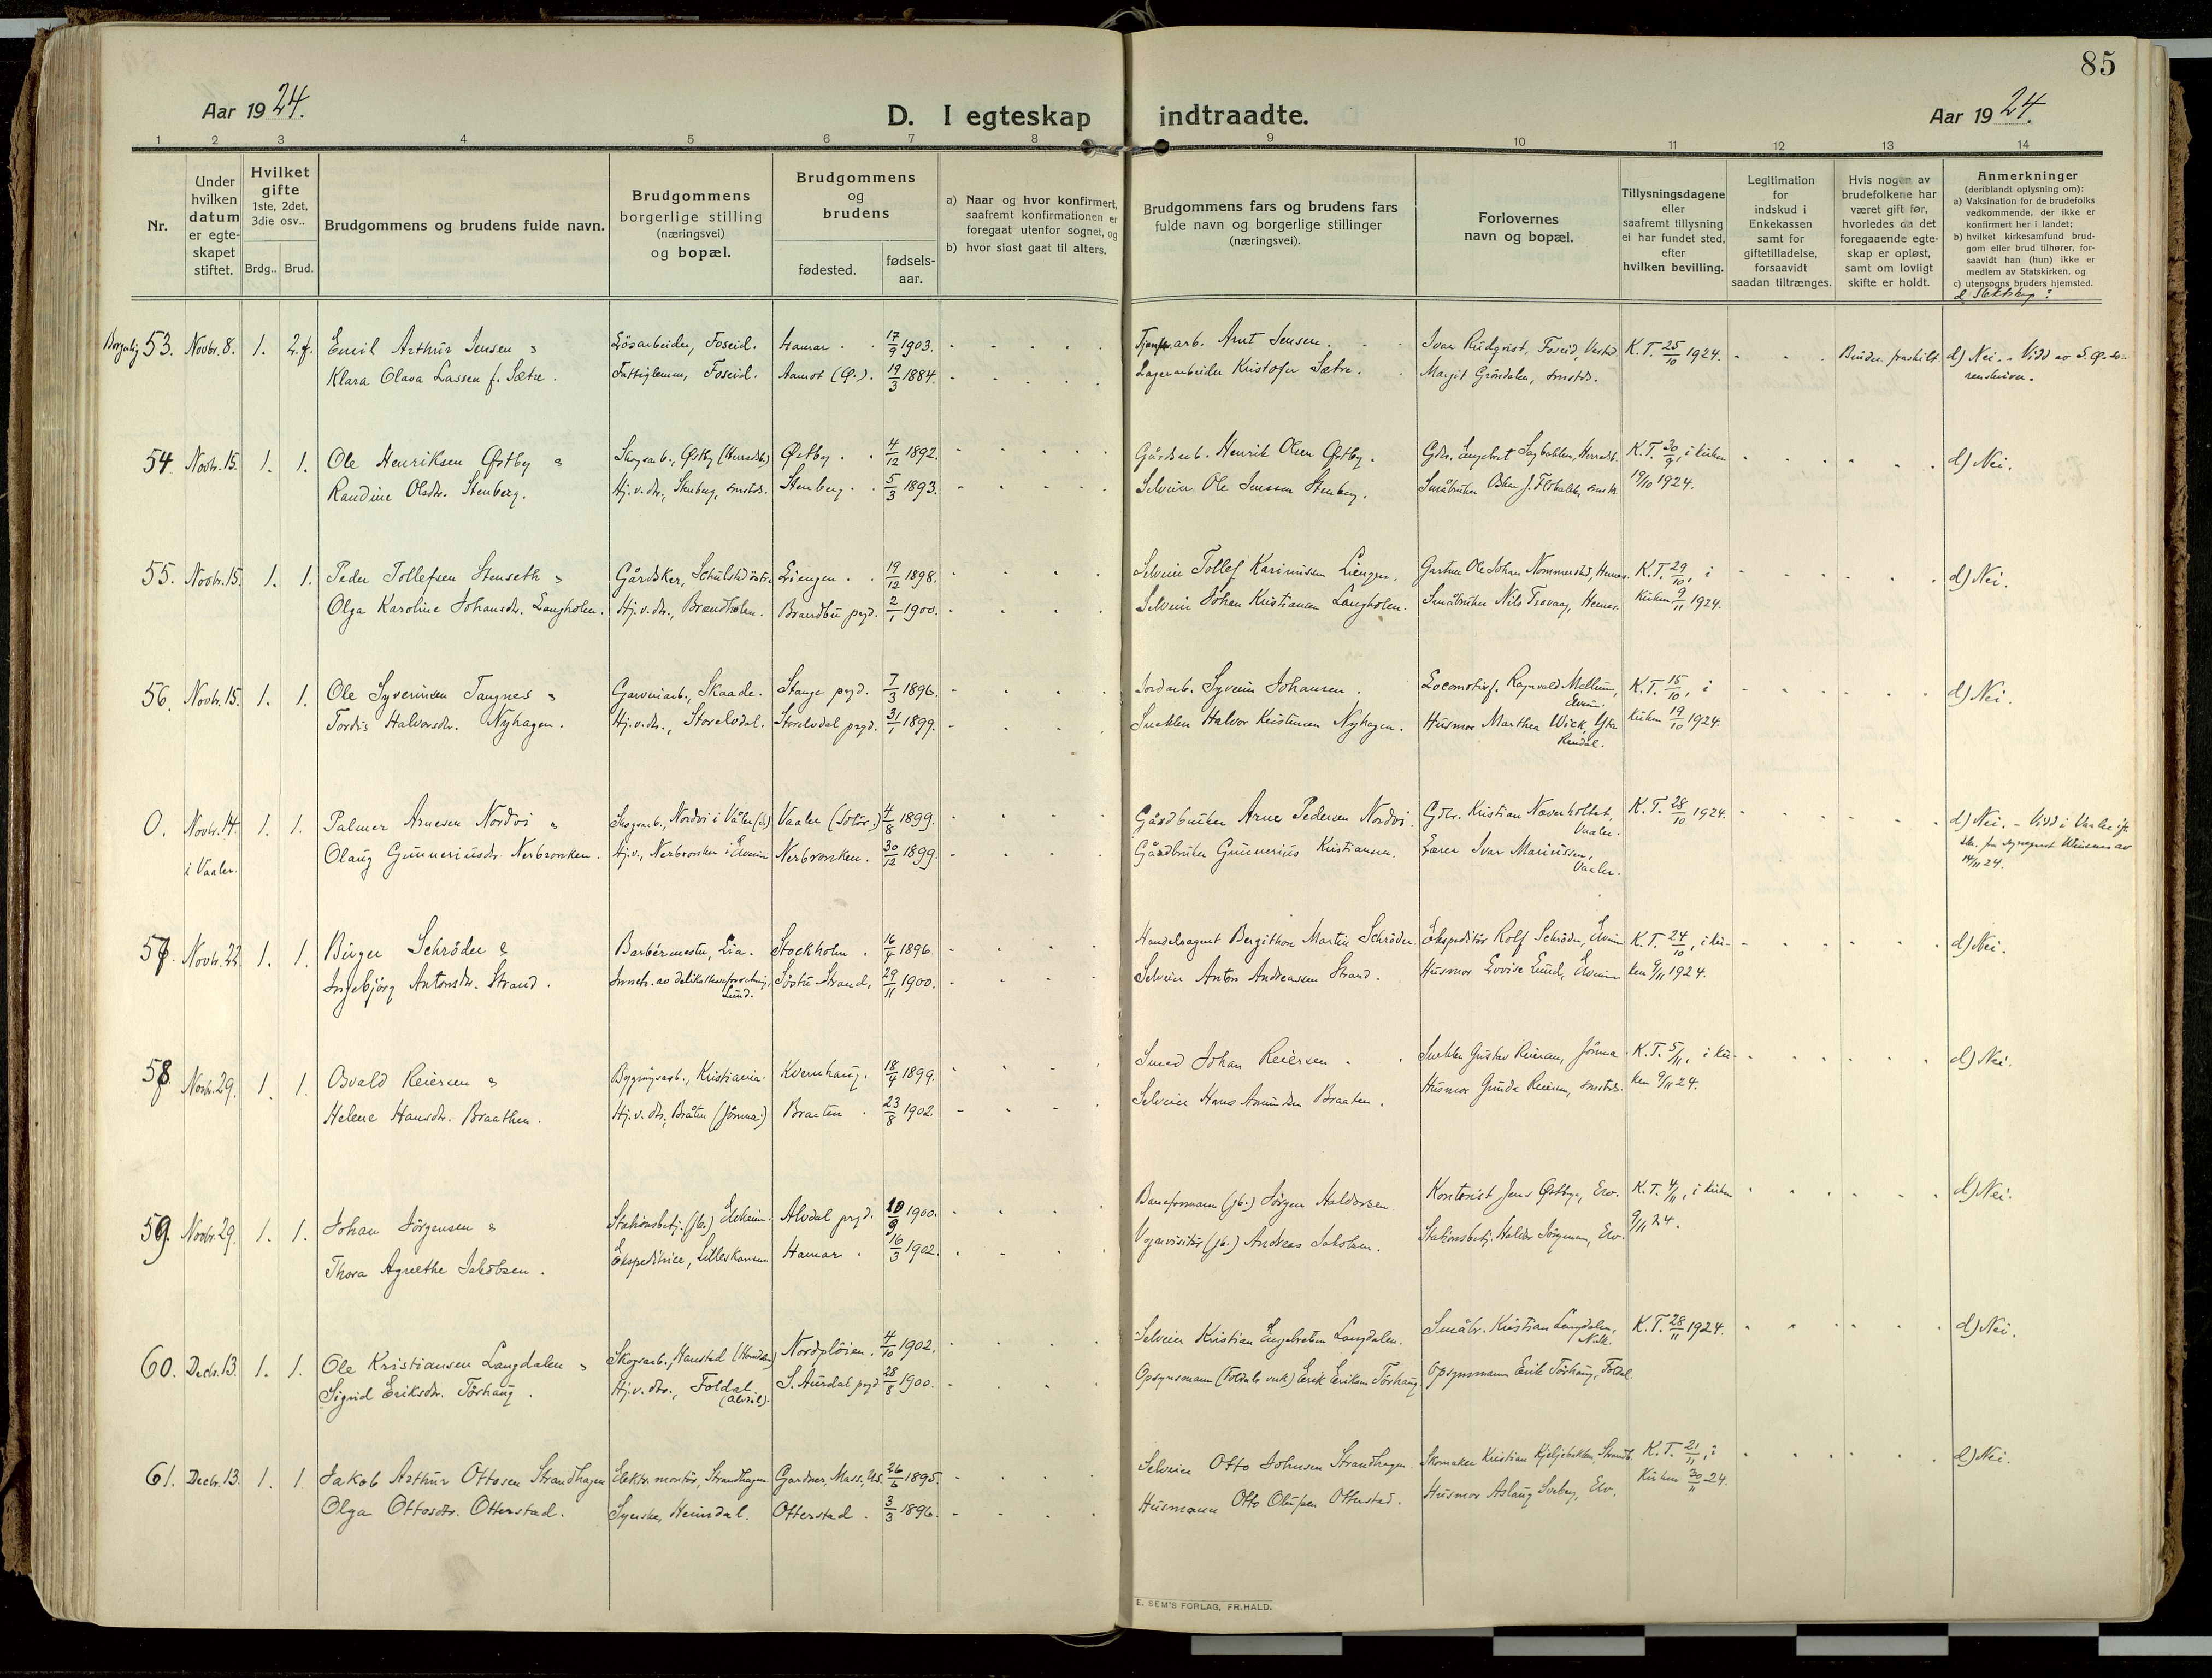 85
Aar 1924.
D. I egteskap indtraadte.
Aar 1924.
1 2 3 4 5 6 7 8 9 10 11 12 13 14
Nr.
Under hvilken datum er egte-skapet stiftet.
Hvilket gifte 1ste, 2det, 3die osv..
Brdg.. Brud.
Brudgommens og brudens fulde navn.
Brudgommens borgerlige stilling (næringsvei) og bopæl.
Brudgommens og brudens
fødested.
fødsels-aar.
a) Naar og hvor konfirmert, saafremt konfirmationen er foregaat utenfor sognet, og
b) hvor sidst gaat til alters.
Brudgommens fars og brudens fars fulde navn og borgerlige stillinger (næringsvei).
Forlovernes navn og bopæl.
Tillysningsdagene eller saafremt tillysning ei har fundet sted, efter hvilken bevilling.
Legitimation for indskud i Enkekassen samt for giftetilladelse, forsaavidt saadan tiltrænges.
Hvis nogen av brudefolkene har været gift før, hvorledes da det foregaaende egte-skap er opløst, samt om lovligt skifte er holdt.
Anmerkninger
(deriblandt oplysning om):
a) Vaksination for de brudefolks vedkommende, der ikke er konfirmert her i landet;
b) hvilket kirkesamfund brud-gom eller brud tilhører, for-saavidt han (hun) ikke er medlem av Statskirken, og
c) utensogns bruders hjemsted.
d) Slektskap?
Borgerlig 53. Novbr. 8. 1. 2. f. Emil Arthur Jensen Løsarbeider, Foseid. Hamar 17/9 1903. Arnt Jensen. Ivar Rudqvist, Foseid, K.T. 25/10 1924. Bruden fraskilt d) Nei. - Vidd av
Klara Olava Lassen f. Sætre. Fattiglemm, Foseid. Aamot (Ø.) 19/3 1884. Lagerarbeider Kristofer Sætre. Margit Grøndalen, smstds.
54. Novbr. 15. 1. 1. Ole Henriksen Østby Skogsarb., Østby Østby 4/12 1892. Gårdbr. Henrik Olsen Østby. K.T. 30/9, i kirken d) Nei.
Randine Olsdtr. Stenberg. Hj.v.dtr., Stenberg, smstds. Stenberg 5/3 1893. Selveier Ole Jenssen Stenberg. Småbruker 19/10 1924.
55. Novbr. 15. 1. 1. Peder Tollefsen Stenseth Gårdsker, Liengen 19/12 1898. Selveier Tollef Karinusen Liengen. Gartner Ole Johan K.T. 29/10, i d) Nei.
Olga Karoline Johansdtr. Langholen. Hj.v.dtr., Brændholen. Brandbu prgd. 2/1 1900. Selveier Johan Kristiansen Langholen. Småbruker Nils kirken 9/11 1924.
56. Novbr. 15. 1. 1. Ole Syverinsen Tangnes Garveriarb., Skaade. Stange prgd. 7/3 1896. Jordarb. Syverin Johansen. Locomotivf. Ragnvald Mellum, K.T. 15/10, i d) Nei.
Elverum.
Tordis Halvorsdtr. Nyhagen. Hj.v.dtr., Storelvdal. Storelvdal prgd. 31/1 1899. Snekker Halvor Kristiansen Nyhagen. Husmor Marthea Wick, Ytre kirken 19/10 1924.
Rendal.
0. Novbr. 14. 1. 1. Palmer Arnesen Nordvi Skogsarb., Nordvi i Våler Vaaler (Solør.) 4/8 1899. Gårdbruker Arne Pedersen Nordvi. Gdbr. Kristian Næverholtet, K.T. 28/10 1924. d) Nei. - Vidd i Vaaler
Vaaler.
i Vaaler. Olaug Gunneriusdtr. Nerbronken. Hj.v., Nerbronken i Elverum Nerbronken. 30/12 1899. Gårdbruker Gunnerius Kristiansen. Lærer Ivar Mariussen, 14/11 24.
Vaaler.
57. Novbr. 22. 1. 1. Birger Schrøder Barbérmester, Lia. Stockholm 16/4 1896. Handelsagent Bergithon Martin Schrøder. Ekspeditør Rolf Schrøder, Elverum K.T. 24/10, i kir- d) Nei.
Ingebjørg Antonsdtr. Strand. Inneh. av delikatesseforretning, Søstu Strand, 29/11 1900. Selveier Anton Andreassen Strand. Husmor Lovise Lund, Elverum ken 9/11 1924.
Lund.
58. Novbr. 29. 1. 1. Osvald Reiersen Bygningsarb., Kristiania. Kvernhaug. 18/4 1899. Smed Johan Reiersen Snekker Gustav Reiersen, Jømna K.T. 5/11, i kir- d) Nei.
Helene Hansdtr. Braathen. Hj.v.dtr., Bråten (Jømna) Braaten 23/8 1902. Selveier Hans Amundsen Braaten. Husmor Gunda Reiersen, smstds. ken 9/11 24.
59. Novbr. 29. 1. 1. Johan Jørgensen Stationsbetj. (jb.) Elverum. Alvdal prgd. 10/9 1900. Baneformann (jb.) Jørgen Haldorsen. Kontorist Jens Østbye, Elv. K.T. 4/11, i kirken d) Nei.
Thora Agnethe Jakobsen. Ekspeditrice, Hamar 16/3 1902. Vognvisitør (jb.) Andreas Jakobsen. Stationsbetj. Haldor Jørgensen, Elv. 9/11 24.
60. Decbr. 13. 1. 1. Ole Kristiansen Langdalen Skogsarb., Hanstad Nordpløien. 4/10 1902. Selveier Kristian Engebretsen Langdalen. Småbr. Kristian Langdalen, K.T. 28/11 1924. d) Nei.
Sigrid Eriksdtr. Tørhaug. Hj.v.dtr., Foldal S. Aurdal prgd 28/8 1900. Opsynsmann (Foldals verk) Erik Eriksen Tørhaug Opsynsmann Erik Tørhaug, Foldal.
(Alvdal).
61. Decbr. 13. 1. 1 Jakob Arthur Ottosen Strandhagen Elektr. montør, Strandhagen Gardner, Mass., U.S. 26/6 1895. Selveier Otto Johnsen Strandhagen. Skomaker Kristian K.T. 21/11, i d) Nei.
Olga Ottosdtr. Otterstad. Syerske, Heimdal. Otterstad 3/3 1896. Husmann Otto Olufsen Otterstad. Husmor Aslaug Elv. Kirken 30/11 24.
E. SEM'S FORLAG, FR.HALD.